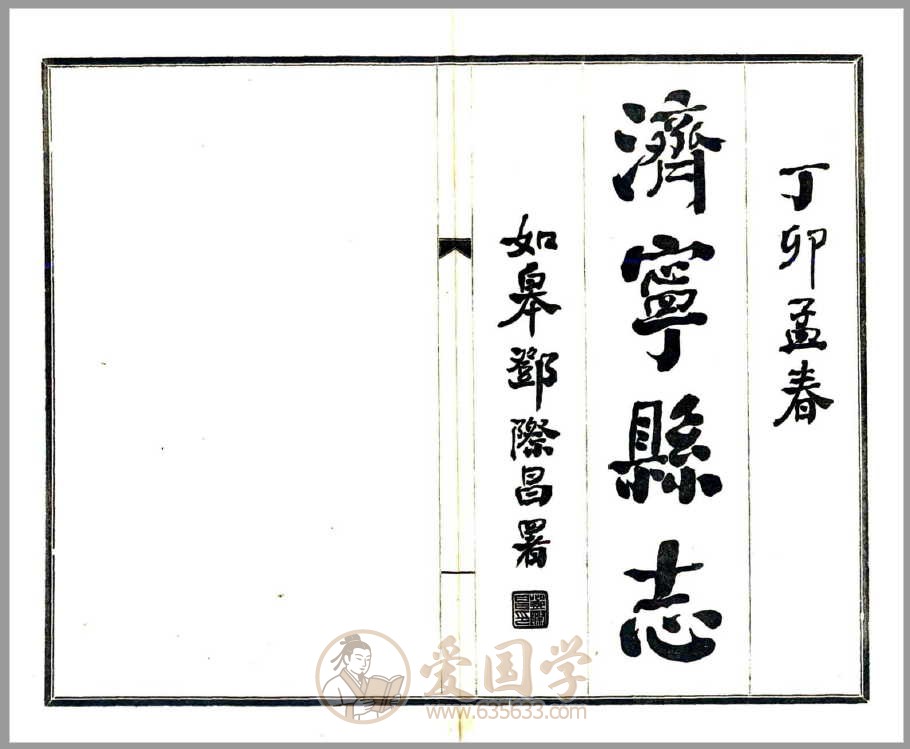 丁卯孟春
濟寧縣志
如皋鄧際昌署
爱国学
www.635633.com